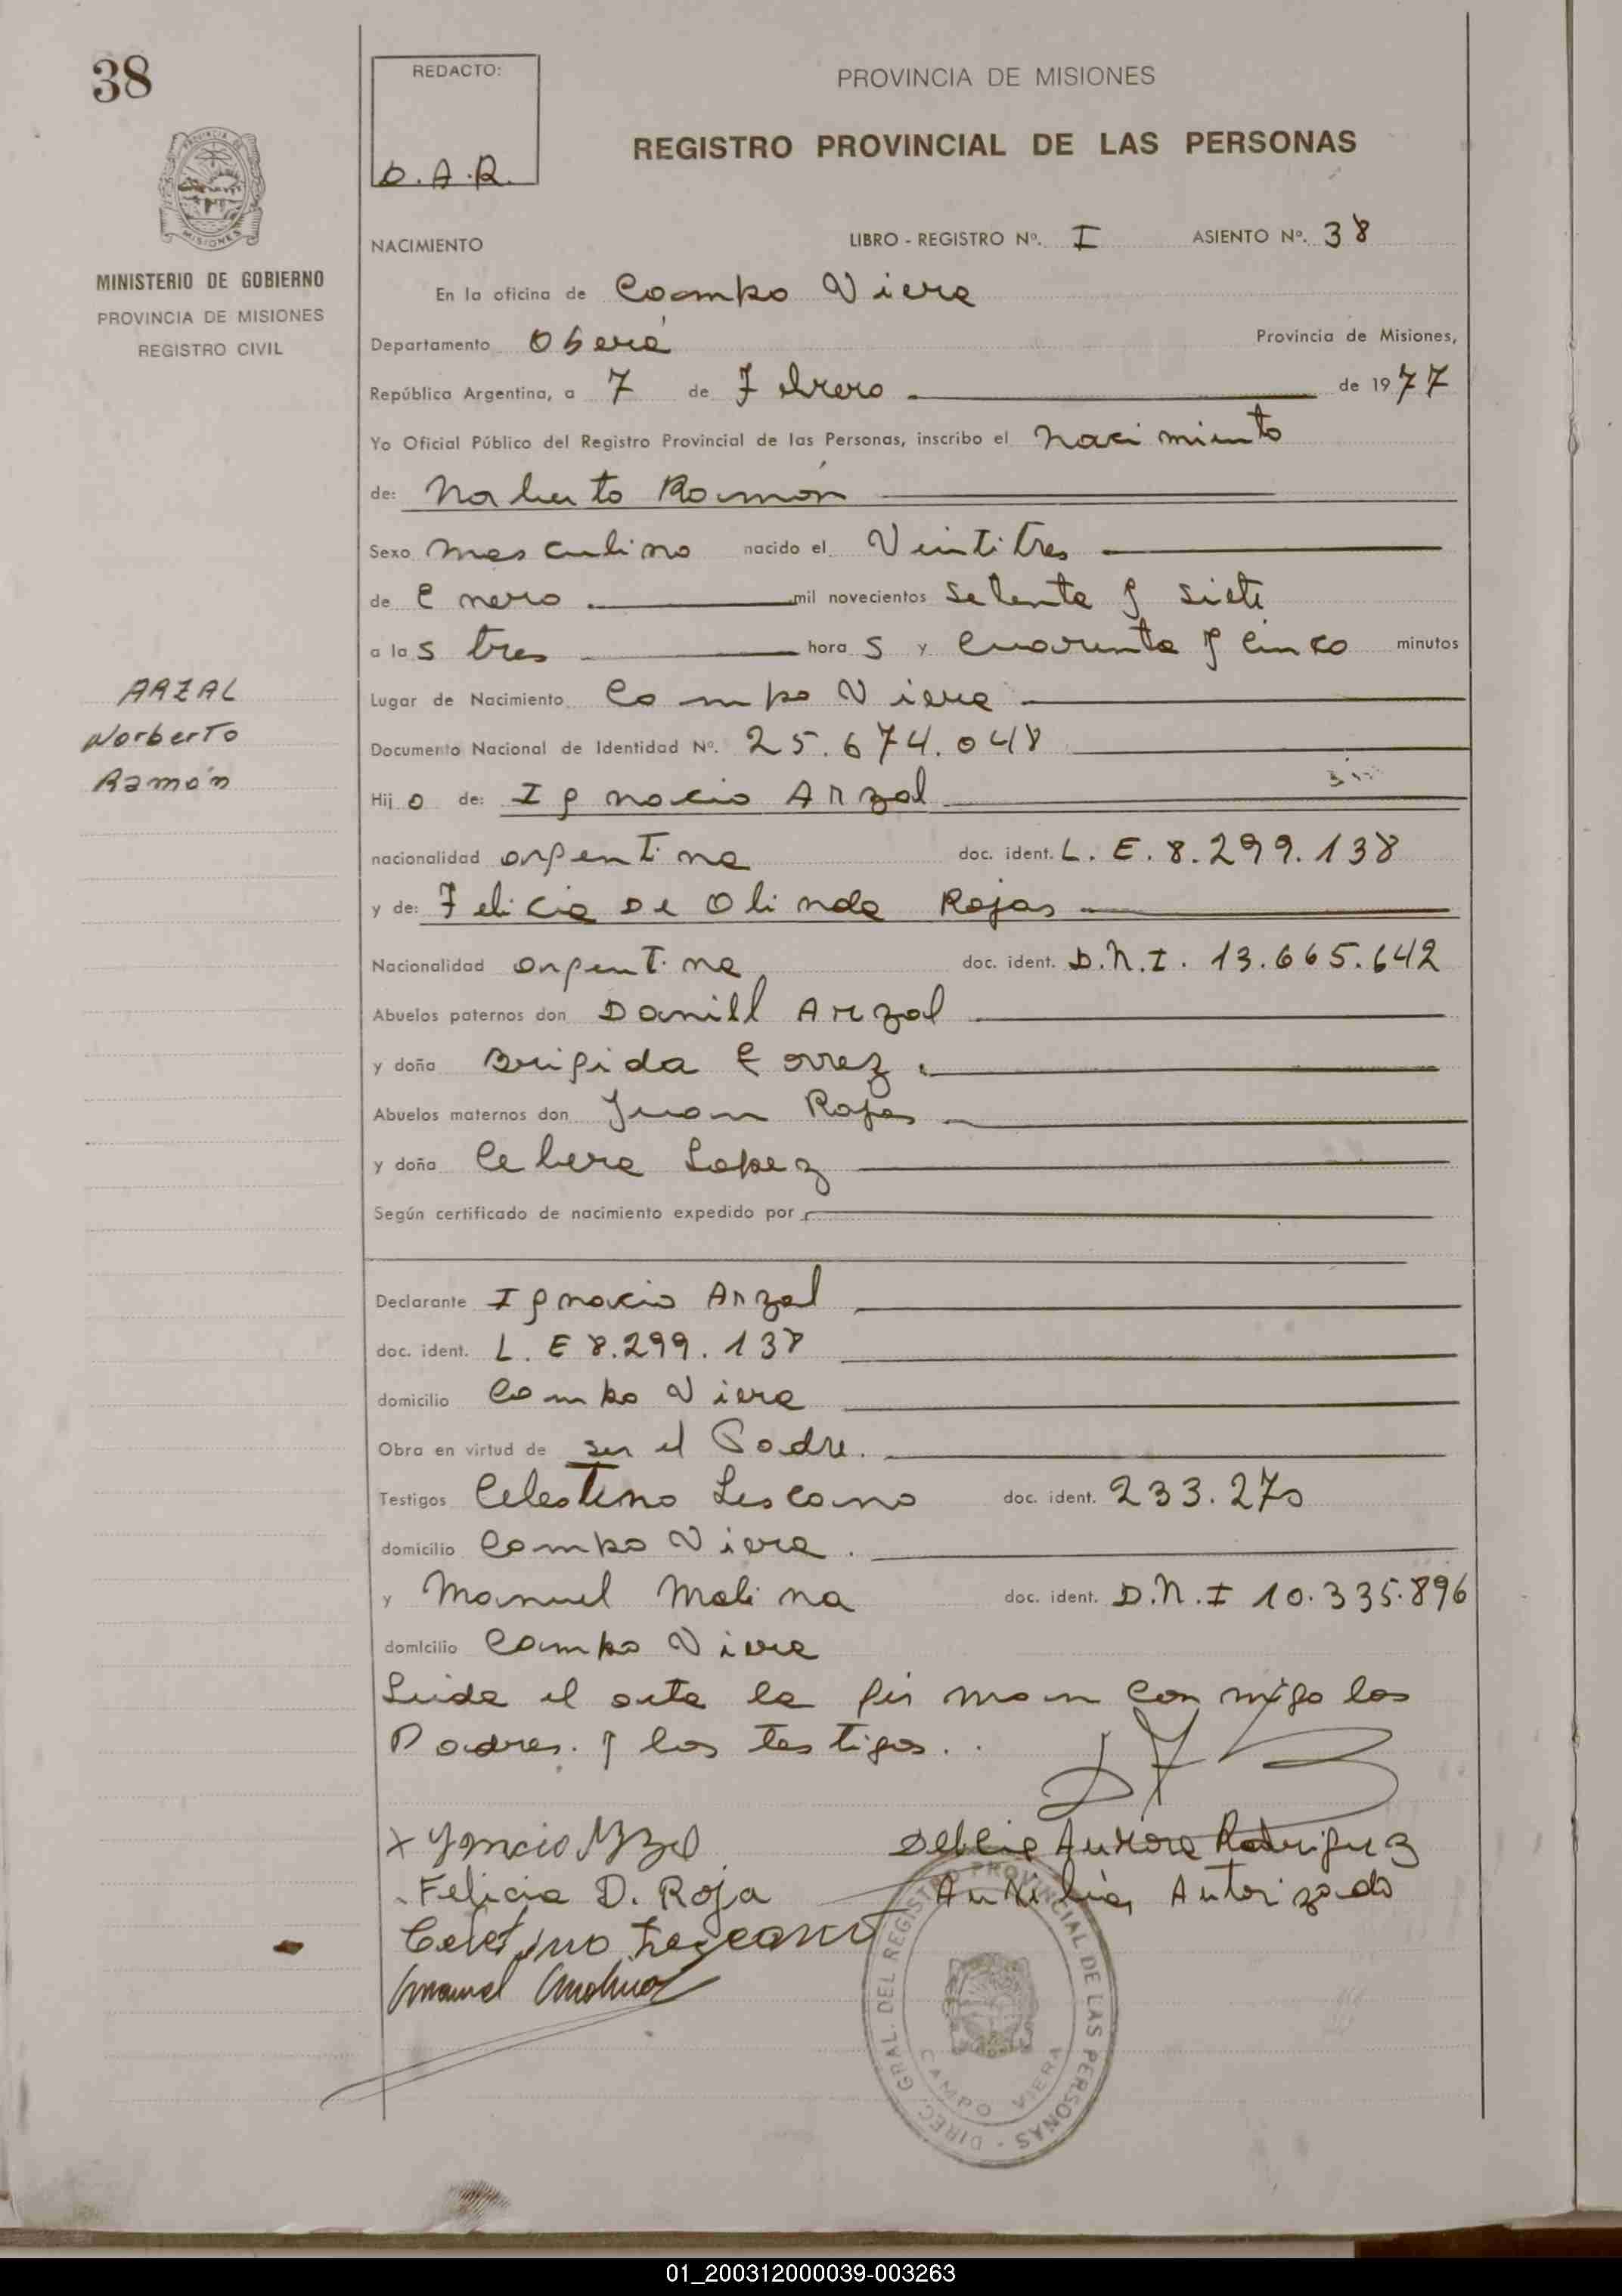 38
REDACTO:
D.A.R.
PROVINCIA DE MISIONES
REGISTRO PROVINCIAL DE LAS PERSONAS
PROVINCIA DE MISIONES
MINISTERIO DE GOBIERNO
PROVINCIA DE MISIONES
REGISTRO CIVIL
NACIMIENTO LIBRO - REGISTRO Nº. I ASIENTO Nº. 38
En la oficina de Campo Viera
Departamento Oberá Provincia de Misiones,
República Argentina, a 7 de Febrero de 1977
Yo Oficial Público del Registro Provincial de las Personas, inscribo el nacimiento
de: Norberto Ramón
Sexo masculino nacido el Veintitres
de Enero mil novecientos setenta y siete
a las tres horas y cuarenta y cinco minutos
ARZAL
Norberto
Ramón
Lugar de Nacimiento Campo Viera
Documento Nacional de Identidad Nº. 25.674.048
Hijo de: Ignacio Arzal
nacionalidad argentina doc. ident. L.E. 8.299.138
y de: Felicia De Olinda Rojas
Nacionalidad argentina doc. ident. D.N.I. 13.665.642
Abuelos paternos don Daniel Arzal
y doña Brigida
Abuelos maternos don Juan Rojas
y doña Lopez
Según certificado de nacimiento expedido por
Declarante Ignacio Arzal
doc. ident. L.E 8.299.138
domicilio Campo Viera
Obra en virtud de ser el Padre.
Testigos Celestino Lescano doc. ident. 233.270
domicilio Campo Viera.
y Manuel Molina doc. ident. D.N.I 10.335.896
domicilio Campo Viera
Leida el acta la firman con migo los
Padres. y los testigos.
x Ygnacio Arzal
Felicia D. Roja
Celestino Lescano
Manuel Molina
Aurora Rodriguez
Auxiliar Autorizado
DIREC. GRAL. DEL REGISTRO PROVINCIAL DE LAS PERSONAS
CAMPO VIERA
01_200312000039-003263